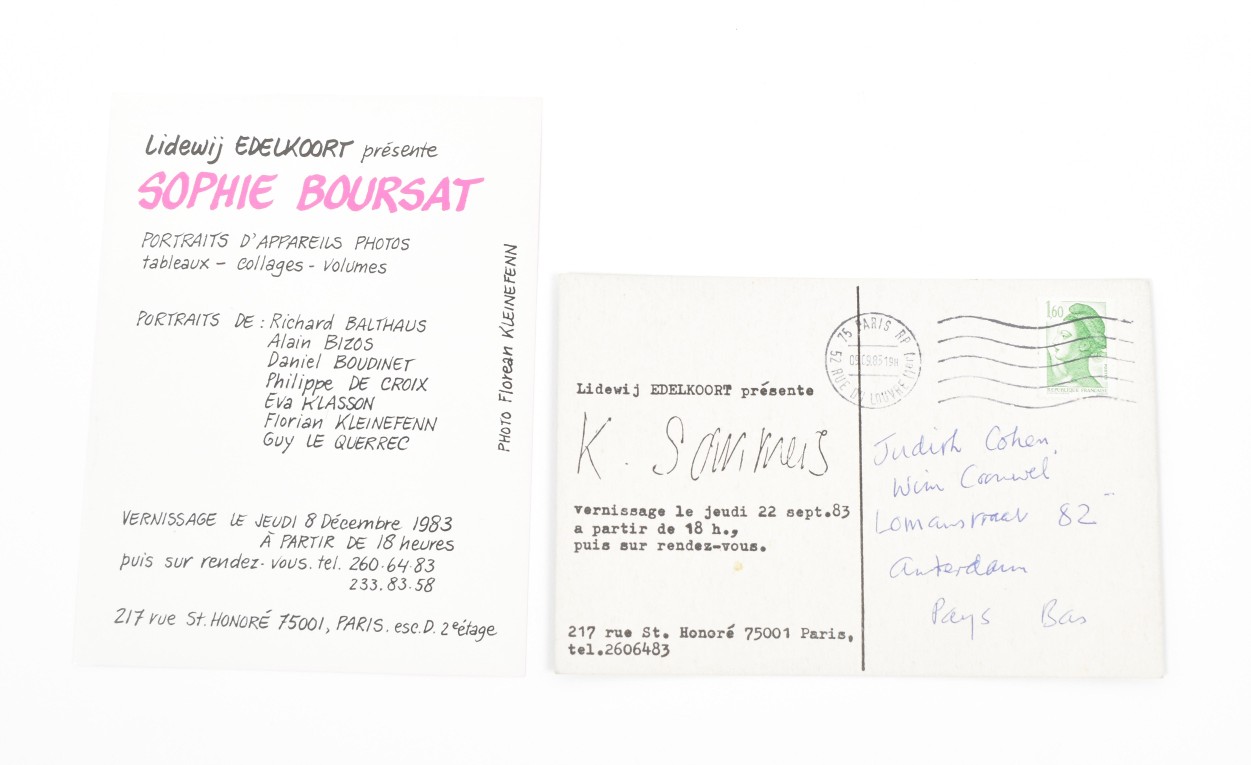 Lidewij EDELKOORT présente
SOPHIE BOURSAT
PORTRAITS D'APPAREILS PHOTOS
tableaux - collages - volumes
PORTRAITS DE: Richard BALTHAUS
Alain BIZOS
Daniel BOUDINET
Philippe DE CROIX
Eva KLASSON
Florian KLEINEFENN
Guy LE QUERREC
PHOTO Florean KLEINEFENN
VERNISSAGE LE JEUDI 8 Décembre 1983
À PARTIR DE 18 heures
puis sur rendez-vous. tel. 260.64.83
233.83.58
217 rue St. HONORÉ 75001, PARIS. esc.D. 2e étage
Lidewij EDELKOORT présente
K. Sommers
vernissage le jeudi 22 sept.83
a partir de 18 h.,
puis sur rendez-vous.
217 rue St. Honoré 75001 Paris,
tel.2606483
75 PARIS RP
52 RUE DU LOUVRE
1,60
Judith Cohen,
Wim Crouwel
Lomanstraat 82
Amsterdam
Pays Bas